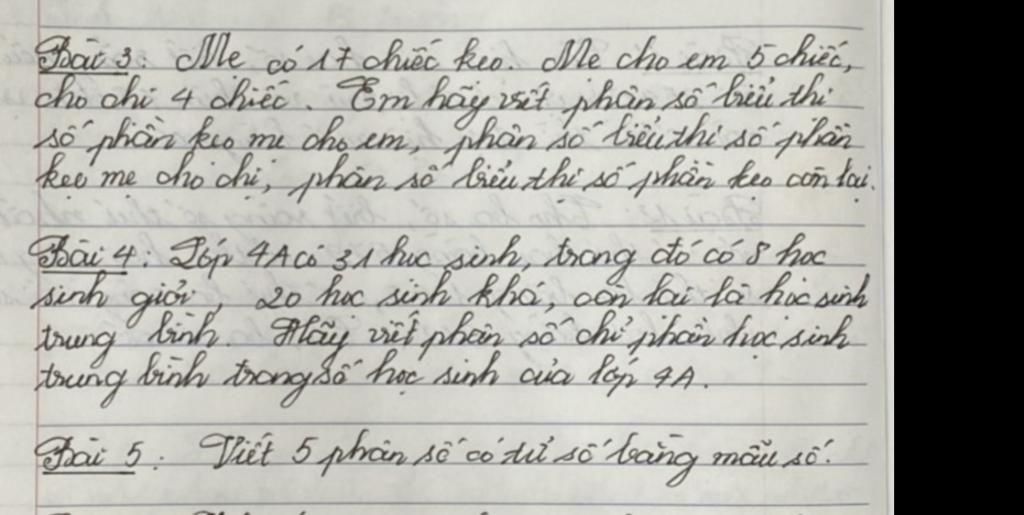 Bài 3: Mẹ có 17 chiếc kẹo. Mẹ cho em 5 chiếc,
cho chị 4 chiếc. Em hãy viết phân số biểu thị
số phần kẹo mẹ cho em, phân số biểu thị số phần
kẹo mẹ cho chị, phân số biểu thị số phần kẹo còn lại.
Bài 4: Lớp 4A có 31 học sinh, trong đó có 8 học
sinh giỏi, 20 học sinh khá, còn lại là học sinh
trung bình. Hãy viết phân số chỉ phần học sinh
trung bình trong số học sinh của lớp 4A.
Bài 5: Viết 5 phân số có tử số bằng mẫu số.